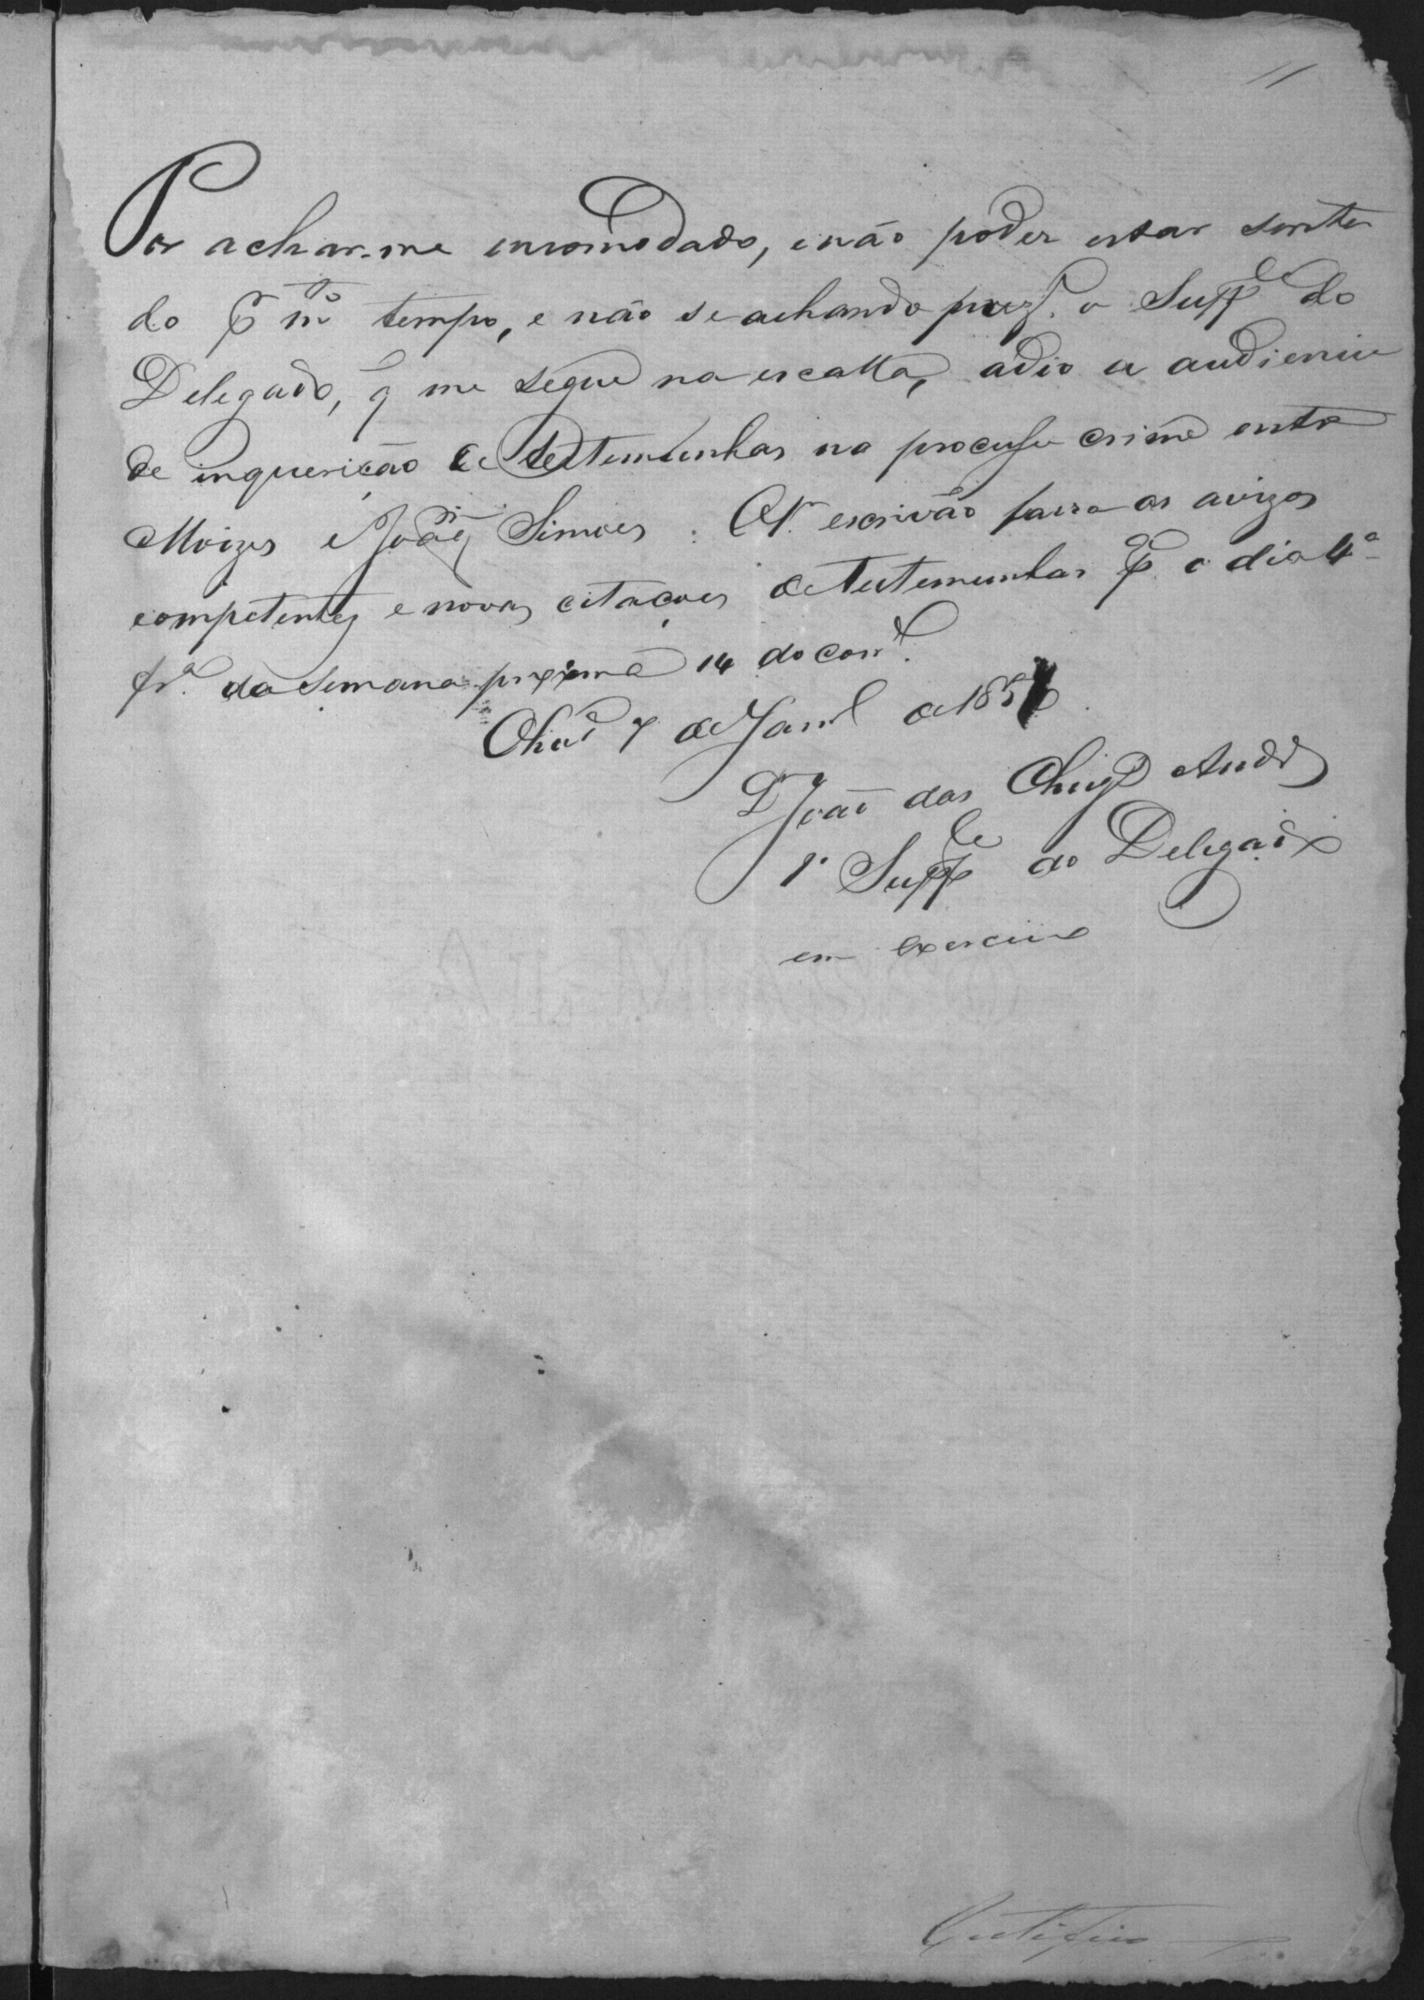 11
Por achar-me encomodado, e não poder estar senta-
do por mto tempo, e não se achando prezte o Suppe do
Delegado, q̃ me segue na escalla, adio a audiencia
de inquerição de testemunhas no processo crime entre
Moizes e João Simoes. O escrivão faça os avizos
competentes, e novas citaçoes de testemunhas pa o dia 4a
fra da semana proxima 14 do corrte.
7 de Janro de 185
João das Chagas Andre
1o Suppe do Delegado
em exercicio
Certifico